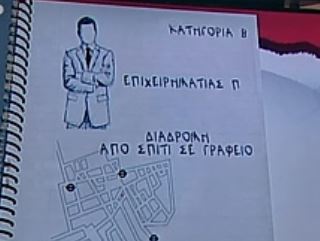 ΚΑΤΗΓΟΡΙΑ Β
ΕΠΙΧΕΙΡΗΜΑΤΙΑΣ Π
ΔΙΑΔΡΟΜΗ
ΑΠΟ ΣΠΙΤΙ ΣΕ ΓΡΑΦΕΙΟ